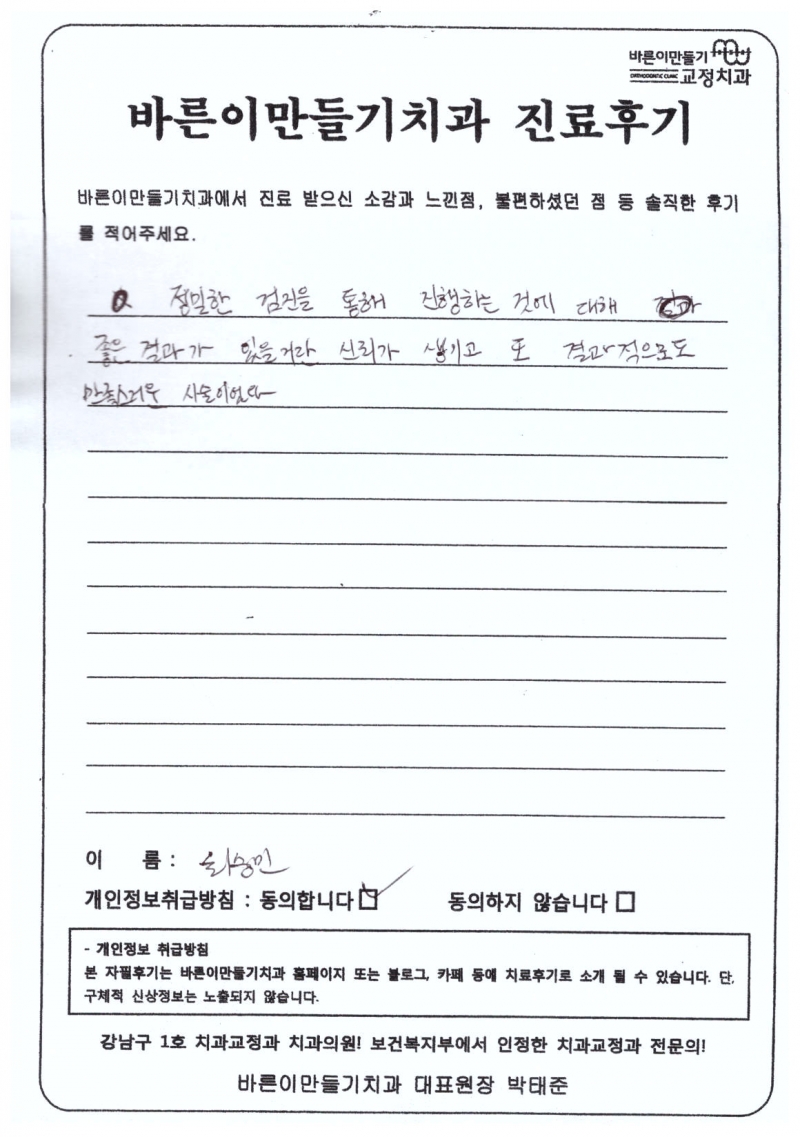 바른이만들기
ORTHODONTIC CLINIC 교정치과
바른이만들기치과 진료후기
바른이만들기치과에서 진료 받으신 소감과 느낀점, 불편하셨던 점 등 솔직한 후기
를 적어주세요.
정밀한 검진을 통해 진행하는 것에 대해
좋은 결과가 있을거란 신뢰가 생기고 또 결과적으로도
만족스러운 시술이었다
이 름 : 최승민
개인정보취급방침 : 동의합니다 동의하지 않습니다
- 개인정보 취급방침
본 자필후기는 바른이만들기치과 홈페이지 또는 블로그, 카페 등에 치료후기로 소개 될 수 있습니다. 단,
구체적 신상정보는 노출되지 않습니다.
강남구 1호 치과교정과 치과의원! 보건복지부에서 인정한 치과교정과 전문의!
바른이만들기치과 대표원장 박태준